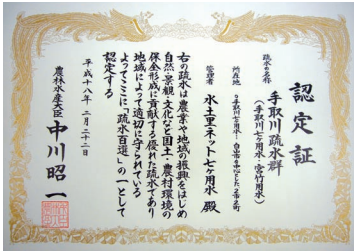 認定証
疏水の名称
手取川疏水群
(手取川七ヶ用水・宮竹用水)
所在地
管理者
水土里ネット七ヶ用水 殿
右の疏水は農業や地域の振興をはじめ
自然・景観・文化など国土・農村環境の
保全形成に貢献する優れた疏水であり
地域によって適切に守られている
よってここに「疏水百選」の一として
認定する
平成十八年 二月二十二日
農林水産大臣 中川昭一